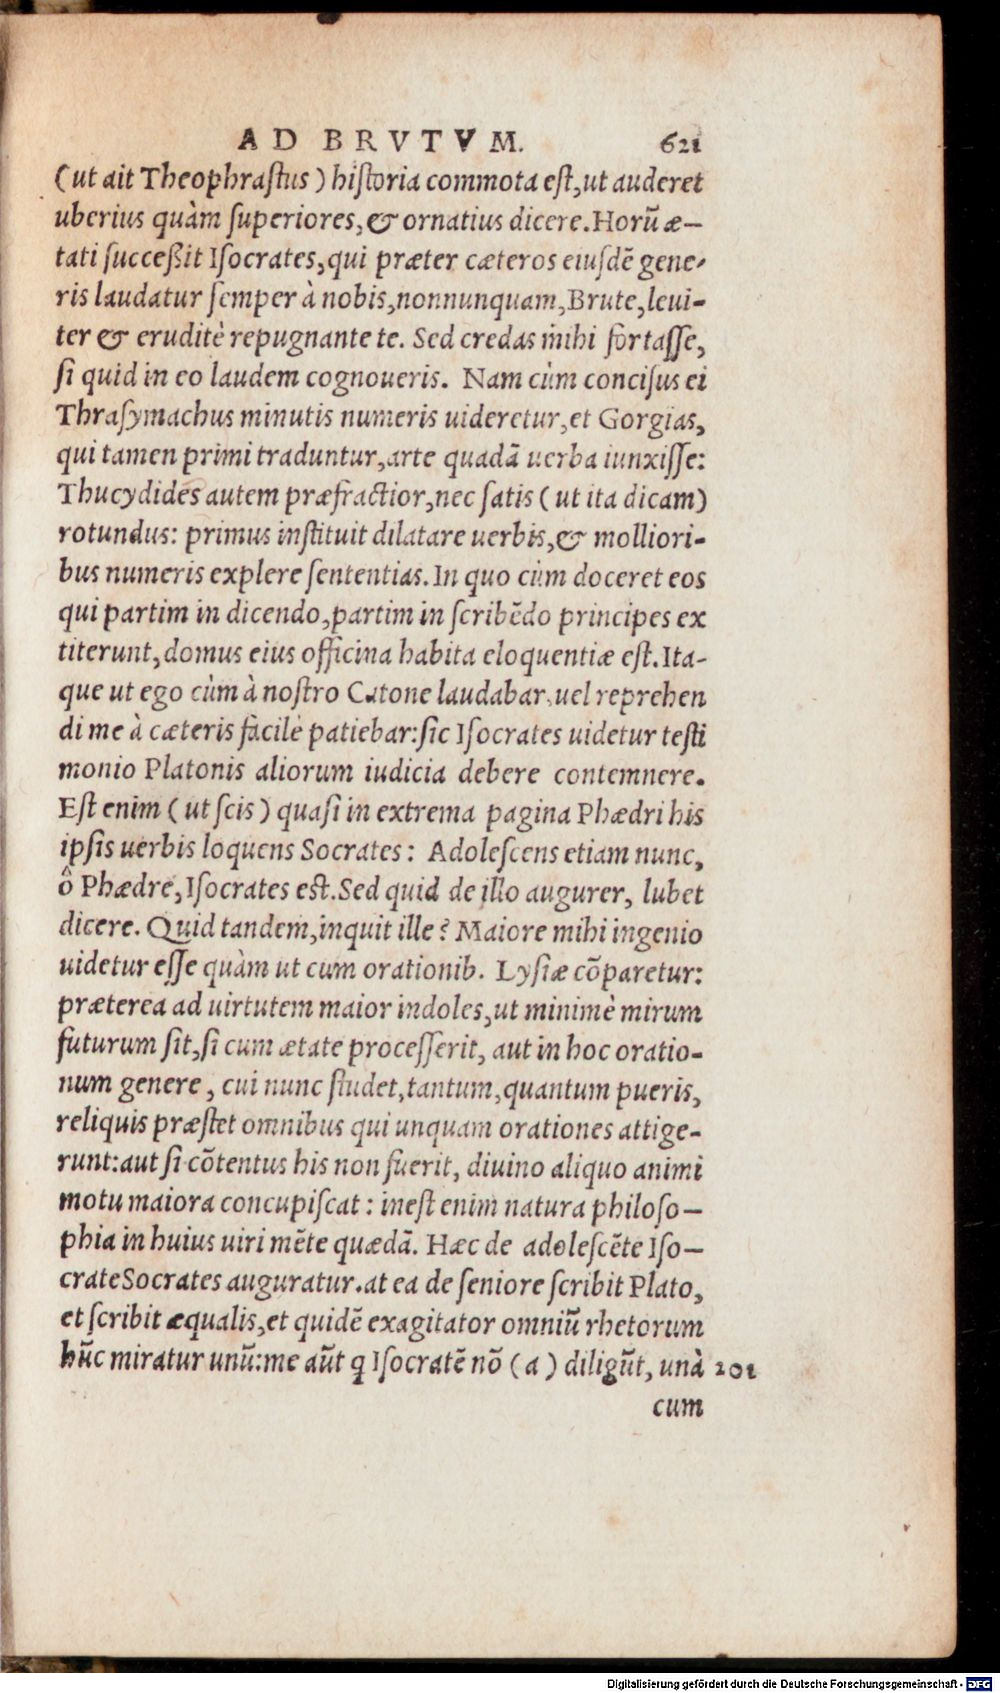 AD BRVTVM. 621
(ut ait Theophraſtus) hiſtoria commota eſt, ut auderet
uberius quàm ſuperiores, & ornatius dicere. Horũ æ-
tati ſucceßit Iſocrates, qui præter cæteros eiuſdẽ gene-
ris laudatur ſemper à nobis, nonnunquam, Brute, leui-
ter & eruditè repugnante te. Sed credas mihi fortaſſe,
ſi quid in eo laudem cognoueris. Nam cùm conciſus ei
Thraſymachus minutis numeris uideretur, et Gorgias,
qui tamen primi traduntur, arte quadã uerba iunxiſſe:
Thucydides autem præfractior, nec ſatis (ut ita dicam)
rotundus: primus inſtituit dilatare uerbis, & molliori-
bus numeris explere ſententias. In quo cùm doceret eos
qui partim in dicendo, partim in ſcribẽdo principes ex
titerunt, domus eius officina habita eloquentiæ eſt. Ita-
que ut ego cùm à noſtro Catone laudabar, uel reprehen
di me à cæteris facilè patiebar: ſic Iſocrates uidetur teſti
monio Platonis aliorum iudicia debere contemnere.
Eſt enim (ut ſcis) quaſi in extrema pagina Phædri his
ipſis uerbis loquens Socrates: Adoleſcens etiam nunc,
ô Phædre, Iſocrates eſt. Sed quid de illo augurer, lubet
dicere. Quid tandem, inquit ille? Maiore mihi ingenio
uidetur eſſe quàm ut cum orationib. Lyſiæ cõparetur:
præterea ad uirtutem maior indoles, ut minimè mirum
futurum ſit, ſi cum ætate proceſſerit, aut in hoc oratio-
num genere, cui nunc ſtudet, tantum, quantum pueris,
reliquis præſtet omnibus qui unquam orationes attige-
runt: aut ſi cõtentus his non fuerit, diuino aliquo animi
motu maiora concupiſcat: ineſt enim natura philoſo-
phia in huius uiri mẽte quædã. Hæc de adoleſcẽte Iſo-
crate Socrates auguratur. at ea de ſeniore ſcribit Plato,
et ſcribit æqualis, et quidẽ exagitator omniũ rhetorum
hũc miratur unũ: me aũt q Iſocratẽ nõ (a) diligũt, unà 201
cum
Digitalisierung gefördert durch die Deutsche Forschungsgemeinschaft - DFG